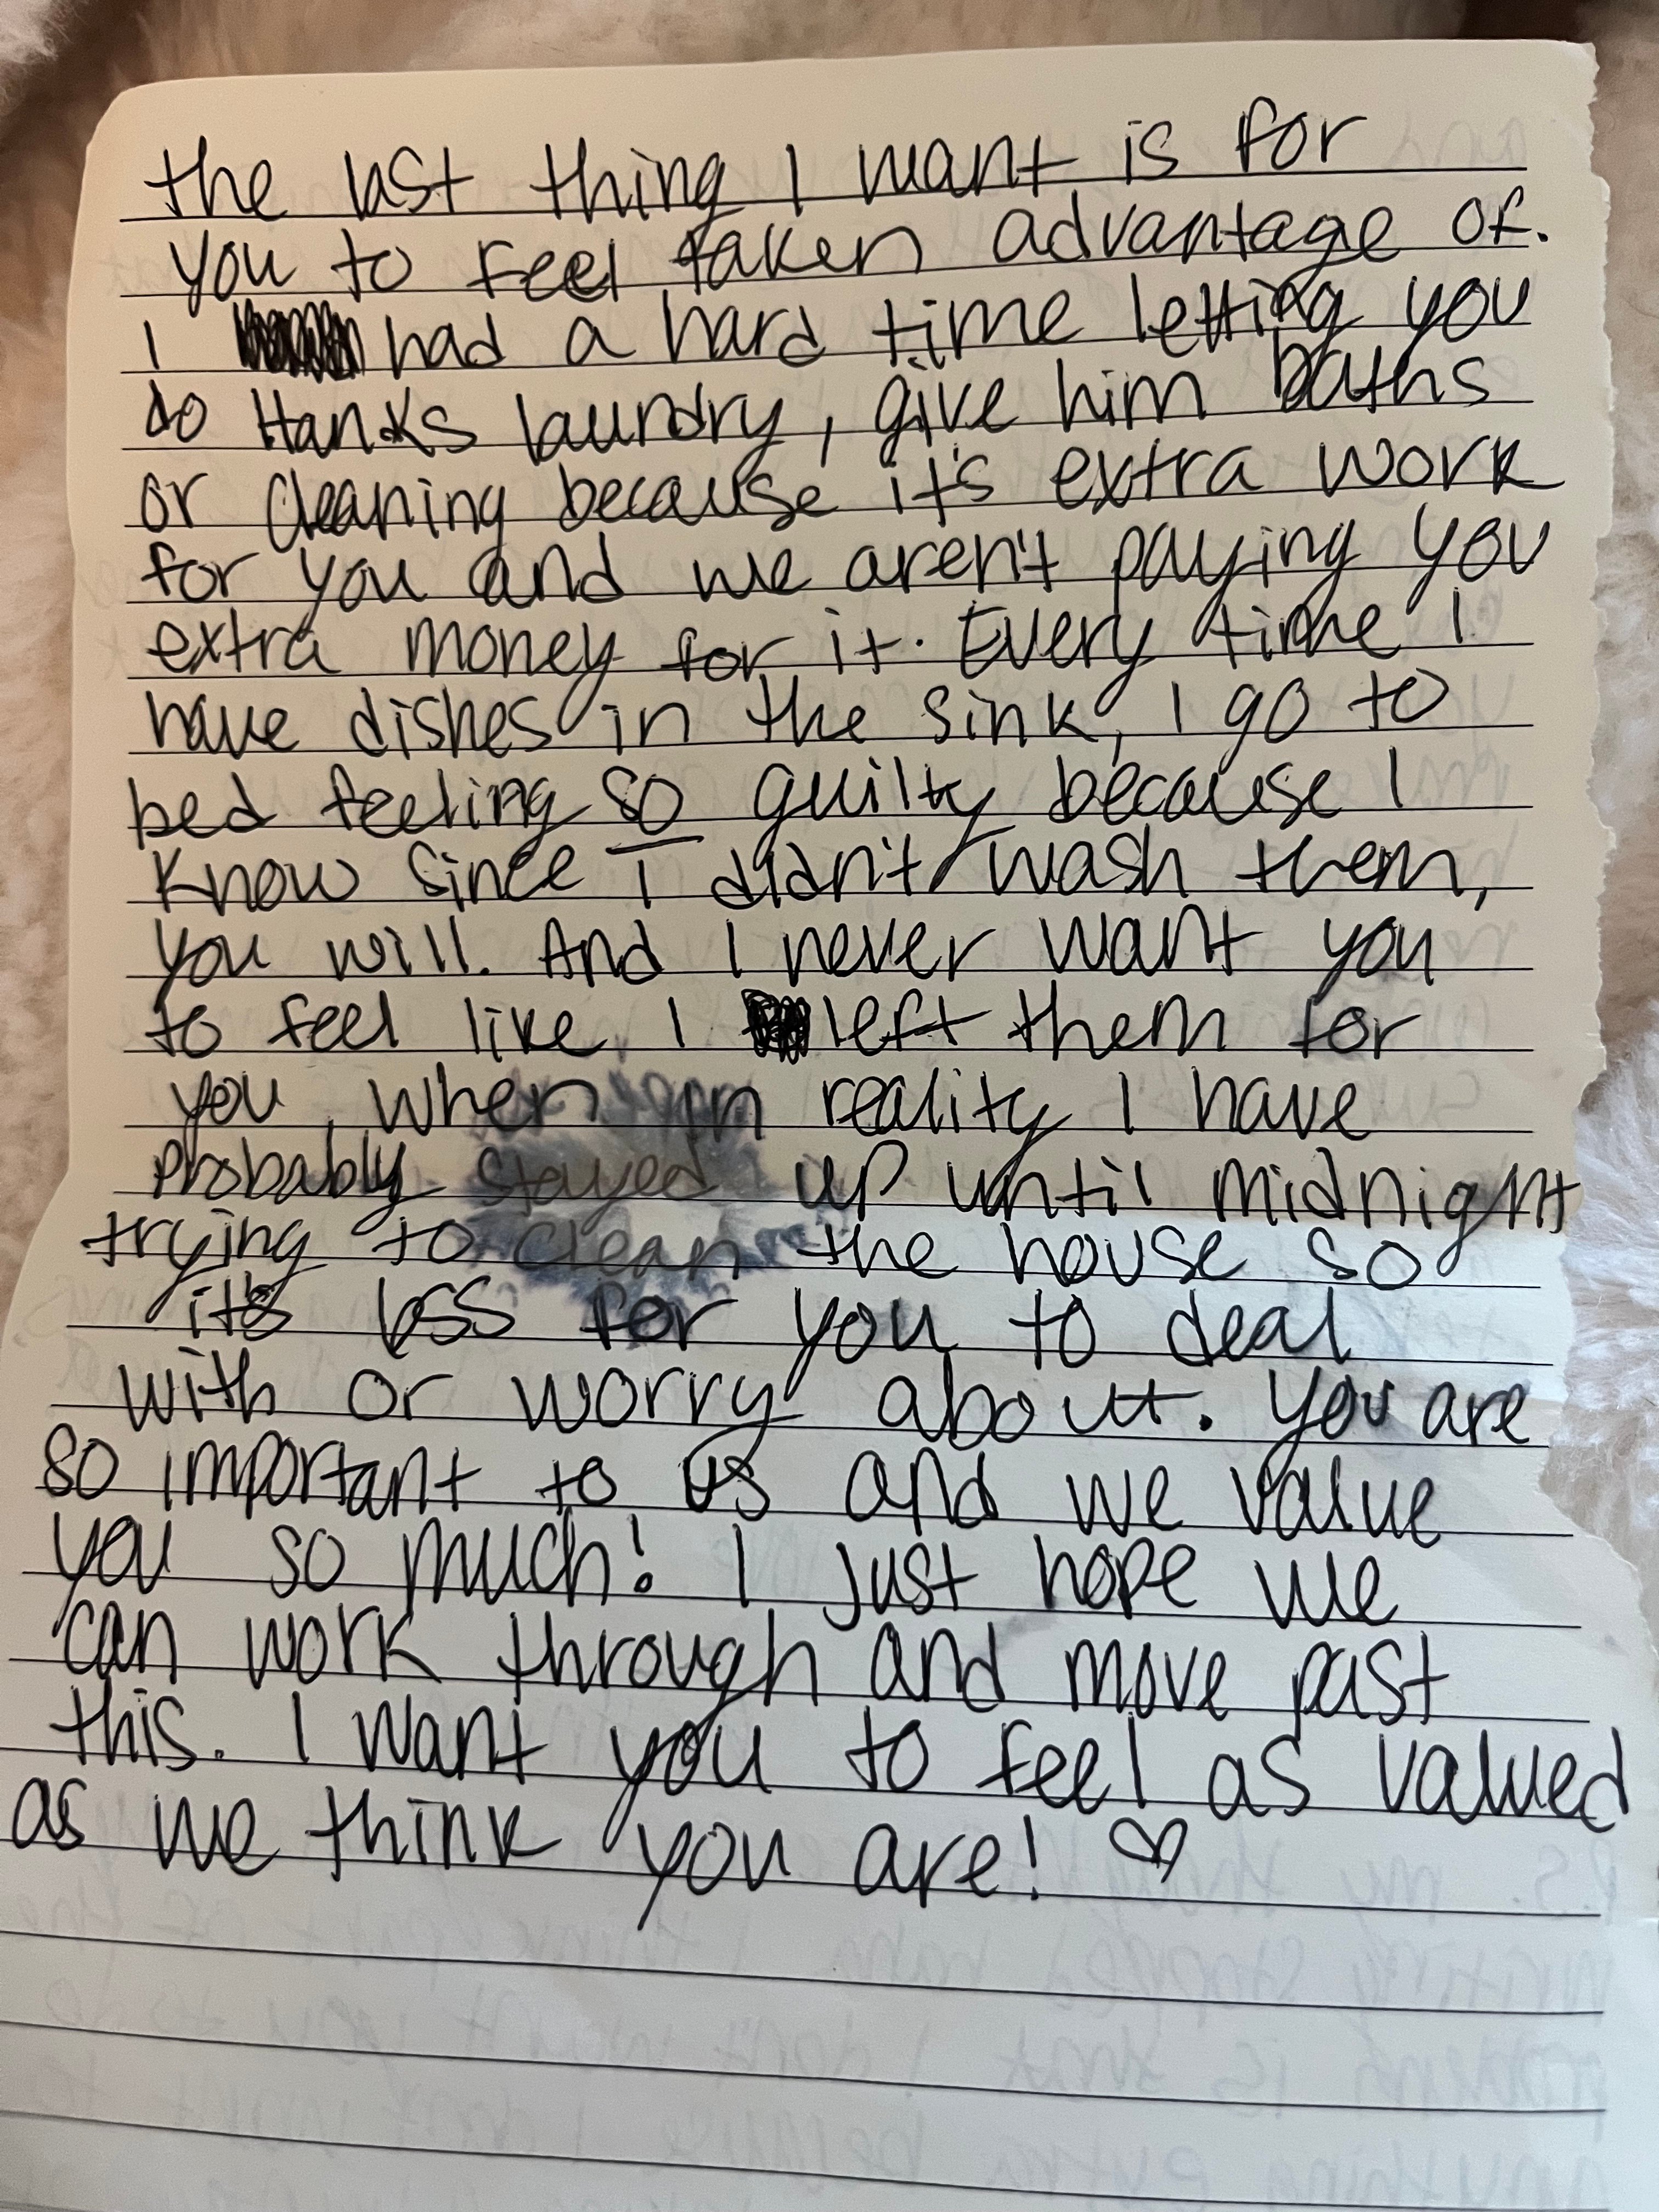 the last thing I want is for
you to feel taken advantage of.
I had a hard time letting you
do Hanks laundry, give him baths
or cleaning because it's extra work
for you and we aren't paying you
extra money for it. Every time I
have dishes in the sink, I go to
bed feeling so guilty because I
know since I didn't wash them,
you will. And I never want you
to feel like I left them for
you, when in reality I have
probably stayed up until midnight
trying to clean the house so
it's less for you to deal
with or worry about. You are
so important to us and we value
you so much! I just hope we
can work through and move past
this. I want you to feel as valued
as we think you are! ♡